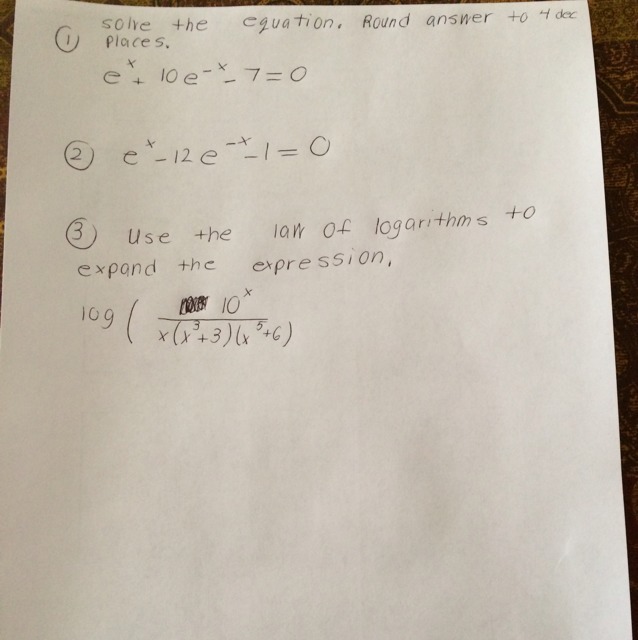 ① solve the equation. Round answer to 4 dec
places.
eˣ + 10e⁻ˣ - 7 = 0
② eˣ - 12e⁻ˣ - 1 = 0
③ Use the law of logarithms to
expand the expression.
log ( 10ˣ / x(x³+3)(x⁵+6)